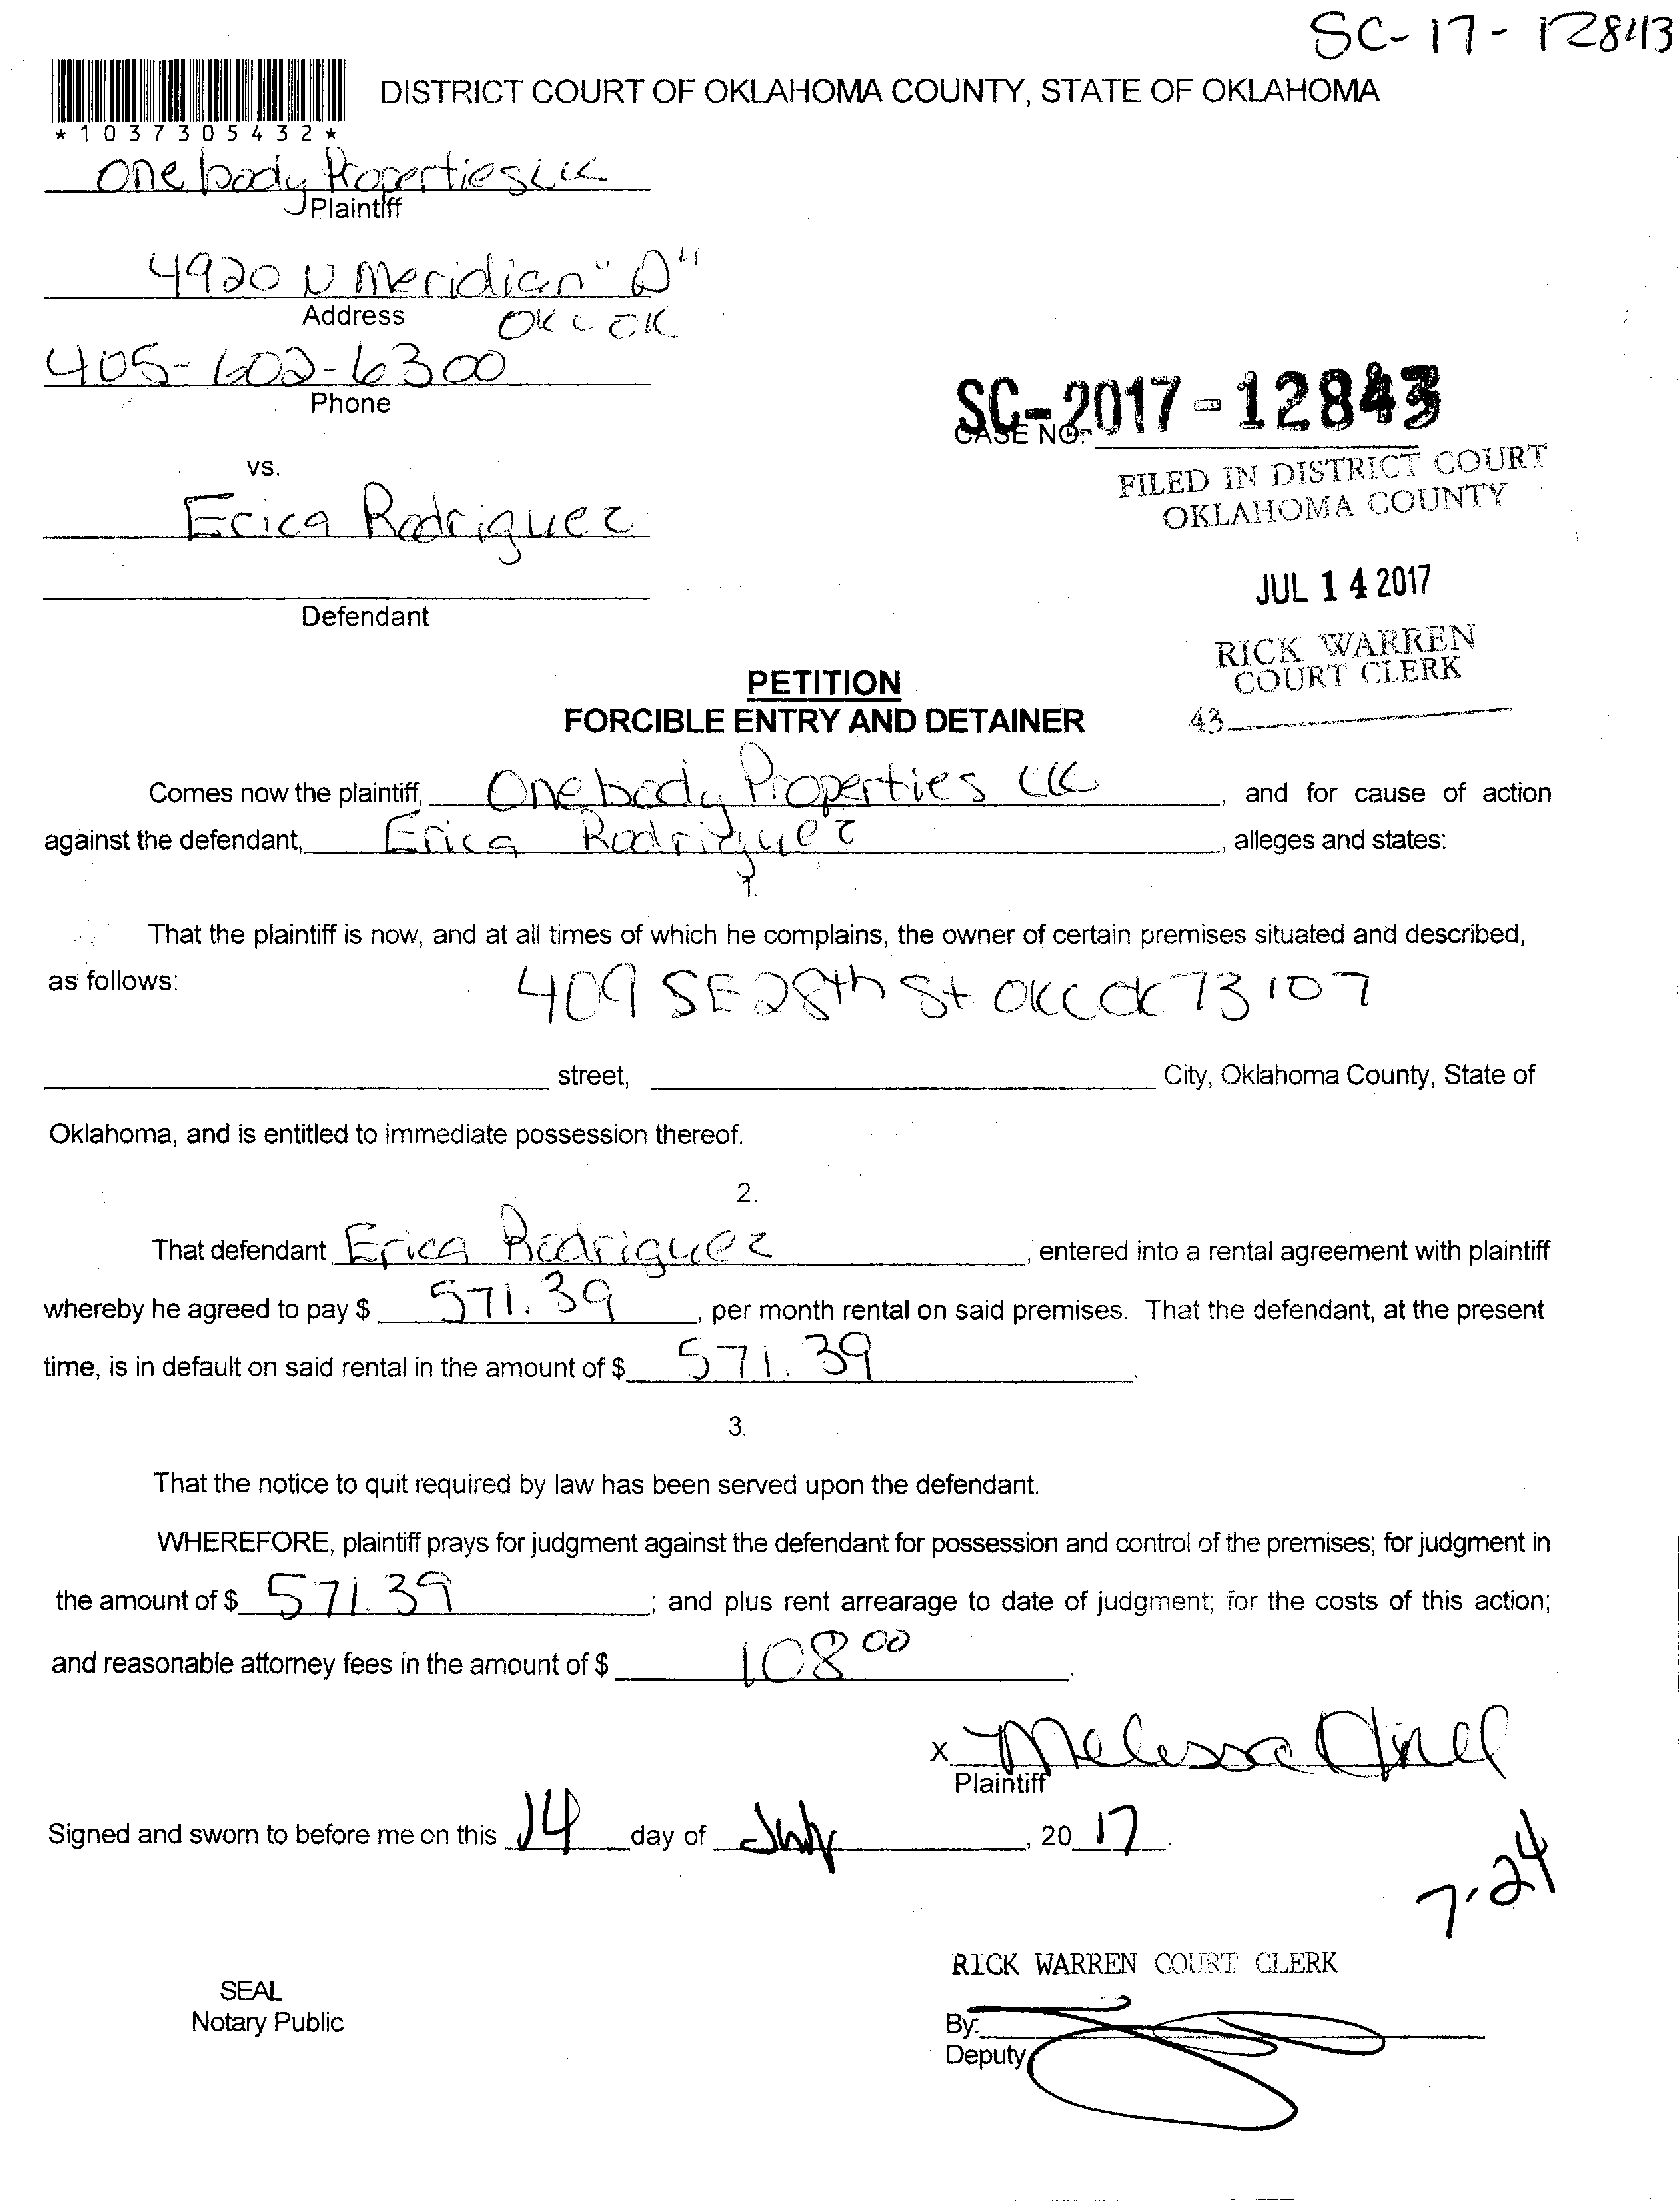 SC-17-12843
DISTRICT COURT OF OKLAHOMA COUNTY, STATE OF OKLAHOMA
*1037305432*
One body Properties LLC
Plaintiff
4920 N Meridian "D"
Address OKC OK
405-602-6300
Phone
SC-2017-12843
CASE NO.
FILED IN DISTRICT COURT
OKLAHOMA COUNTY
vs.
Erica Rodriguez
JUL 14 2017
Defendant
RICK WARREN
COURT CLERK
43
PETITION
FORCIBLE ENTRY AND DETAINER
Comes now the plaintiff, One body Properties LLC, and for cause of action
against the defendant, Erica Rodriguez, alleges and states:
1.
That the plaintiff is now, and at all times of which he complains, the owner of certain premises situated and described,
as follows: 409 SE 28th St OKC OK 73107
street, City, Oklahoma County, State of
Oklahoma, and is entitled to immediate possession thereof.
2.
That defendant Erica Rodriguez, entered into a rental agreement with plaintiff
whereby he agreed to pay $ 571.39, per month rental on said premises. That the defendant, at the present
time, is in default on said rental in the amount of $ 571.39.
3.
That the notice to quit required by law has been served upon the defendant.
WHEREFORE, plaintiff prays for judgment against the defendant for possession and control of the premises; for judgment in
the amount of $ 571.39; and plus rent arrearage to date of judgment; for the costs of this action;
and reasonable attorney fees in the amount of $ 108 00.
x Melissa
Plaintiff
Signed and sworn to before me on this 14 day of July, 2017.
7-24
RICK WARREN COURT CLERK
SEAL
Notary Public
By:
Deputy